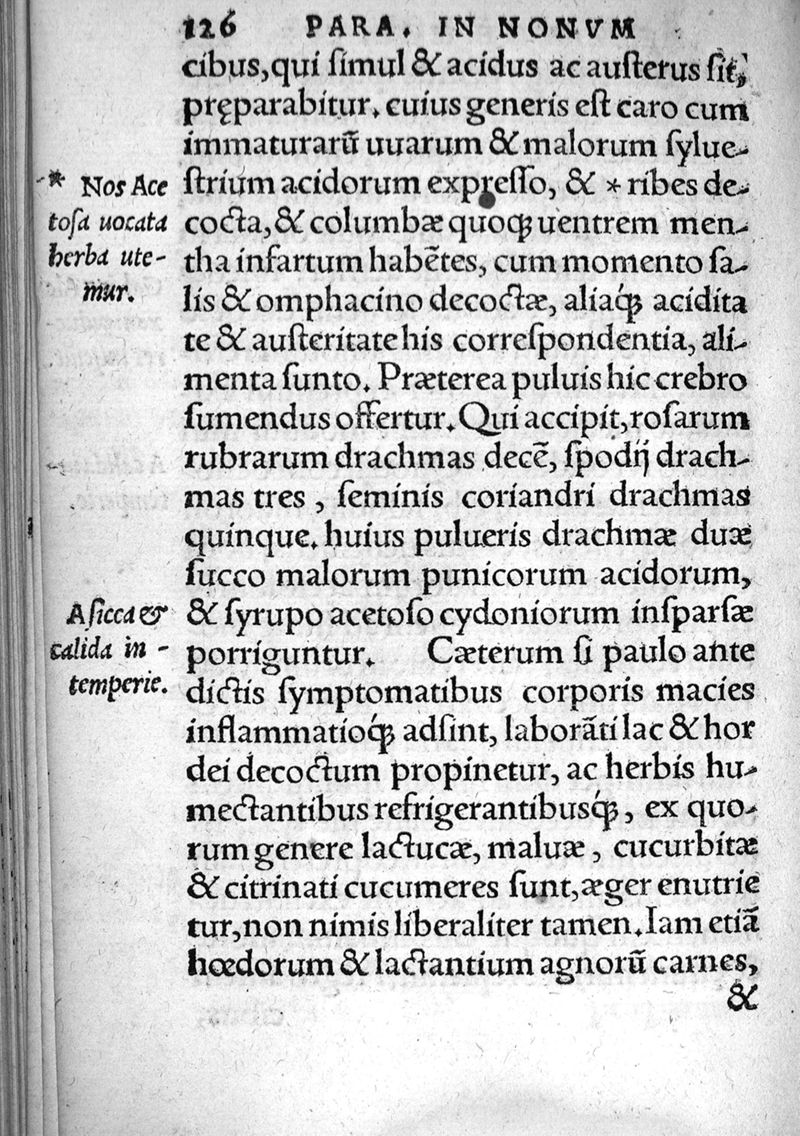 126 PARA. IN NONVM
cibus, qui ſimul & acidus ac auſterus ſit,
pręparabitur. cuius generis eſt caro cum
immaturarũ uuarum & malorum ſylue-
* Nos Ace
ſtrium acidorum expreſſo, & * ribes de-
toſa uocata
cocta, & columbæ quoqꝫ uentrem men-
herba ute-
tha infartum habẽtes, cum momento ſa-
mur.
lis & omphacino decoctæ, aliaqꝫ́ acidita
te & auſteritate his correſpondentia, ali-
menta ſunto. Præterea puluis hic crebro
ſumendus offertur. Qui accipit, roſarum
rubrarum drachmas decẽ, ſpodij drach-
mas tres, ſeminis coriandri drachmas
quinque. huius pulueris drachmæ duæ
ſucco malorum punicorum acidorum,
A ſicca &
& ſyrupo acetoſo cydoniorum inſparſæ
calida in-
porriguntur. Cæterum ſi paulo ante
temperie.
dictis ſymptomatibus corporis macies
inflammatioqꝫ́ adſint, laborãti lac & hor
dei decoctum propinetur, ac herbis hu-
mectantibus refrigerantibusqꝫ́, ex quo-
rum genere lactucæ, maluæ, cucurbitæ
& citrinati cucumeres ſunt, æger enutrie
tur, non nimis liberaliter tamen. Iam etiã
hœdorum & lactantium agnorũ carnes,
&